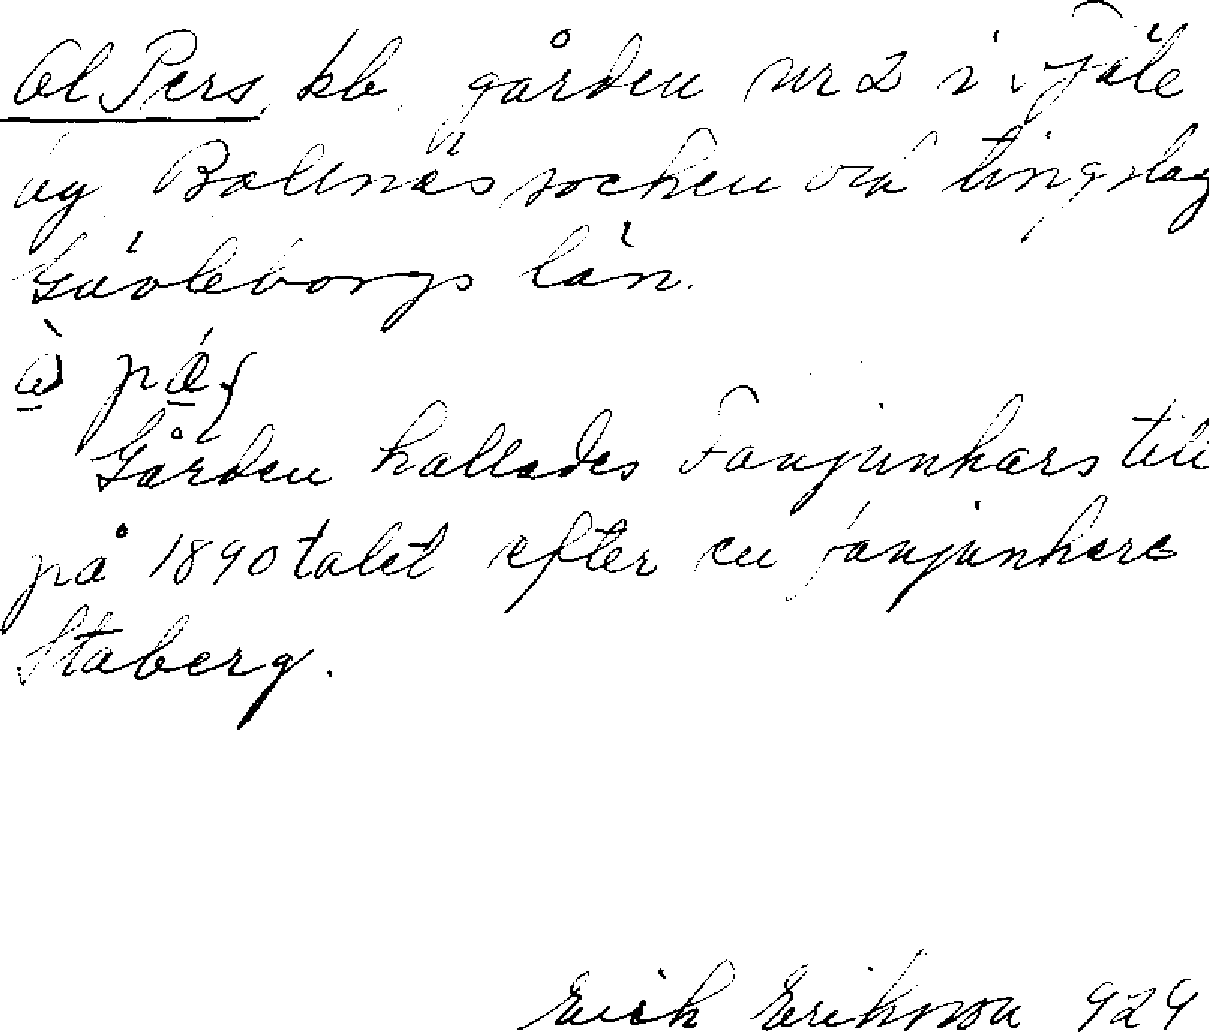 Ol Pers, kb. gården nr 2 i Fjäle
by Bollnäs socken och tingslag
Gävleborgs län.
à på{
Gården kallades Fanjunkars till
på 1890 talet efter en fanjunkare
Staberg.
Erick Erikson 929